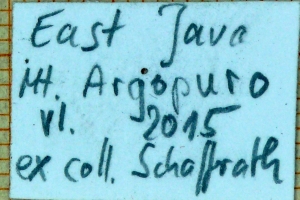 East Java
Mt. Argopuro
VI. 2015
ex coll. Schaffrath